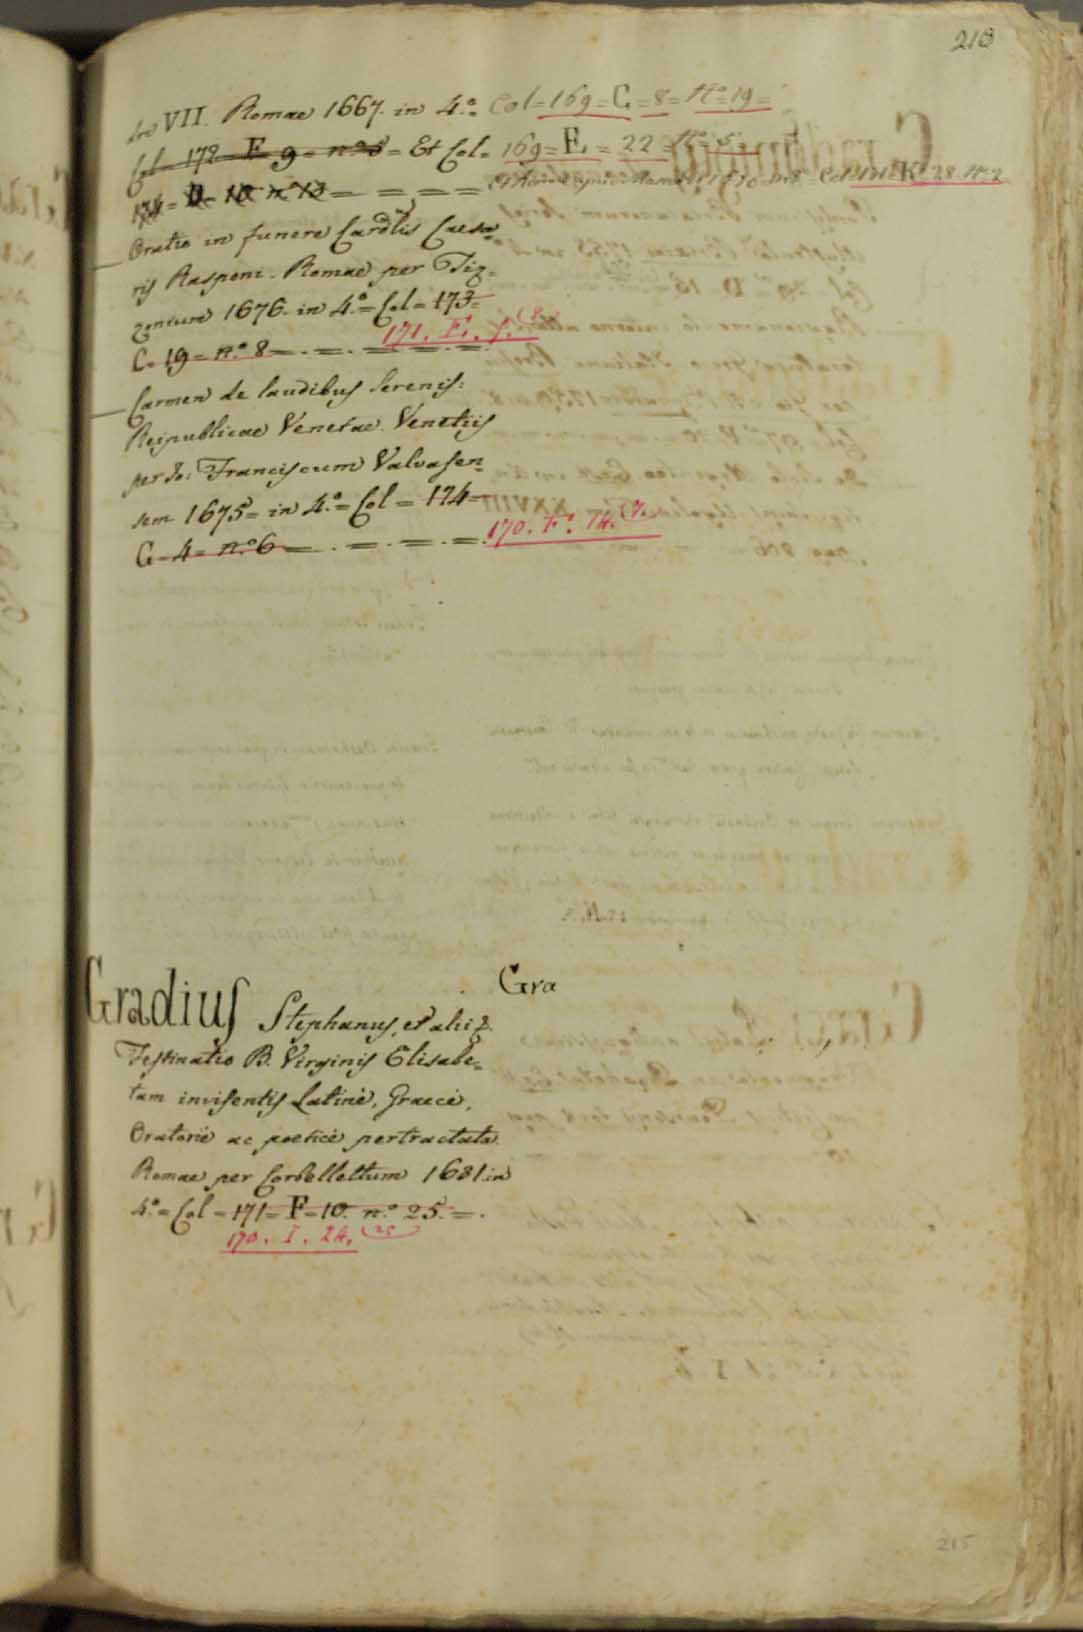 218
dro VII. Romae 1667. in 4.º Col=169=C=8=Nº=19=
Col 172 F 9= nº 8= Et Col= 169=E.=22=Nº=5=
174= D= 10 nº 13= = = =
Oratio in funere Cardlis Caesa=
ris Rasponi. Romae per Tiz=
zonium 1676. in 4.º= Col=173=
C. 19= n.º 8=.=.=.=.=.
171. E. 7. (8.
Carmen de laudibus Serenis:
Reipublicae Venetae. Venetiis
per Jo: Franciscum Valvasen=
sem 1675= in 4.º= Col= 174=
G-4= n.º 6=.=.=.=.
170. F. 14. (7.
Gra
Gradius Stephanus, et alii z
Festinatio B. Virginis Elisabe=
tam invisentis Latinè, Graecè,
Oratoriè ac poeticè pertractata.
Romae per Corbellettum 1681. in
4.º= Col=171= F=10. n.º 25.=.
170. I. 24. (25
215